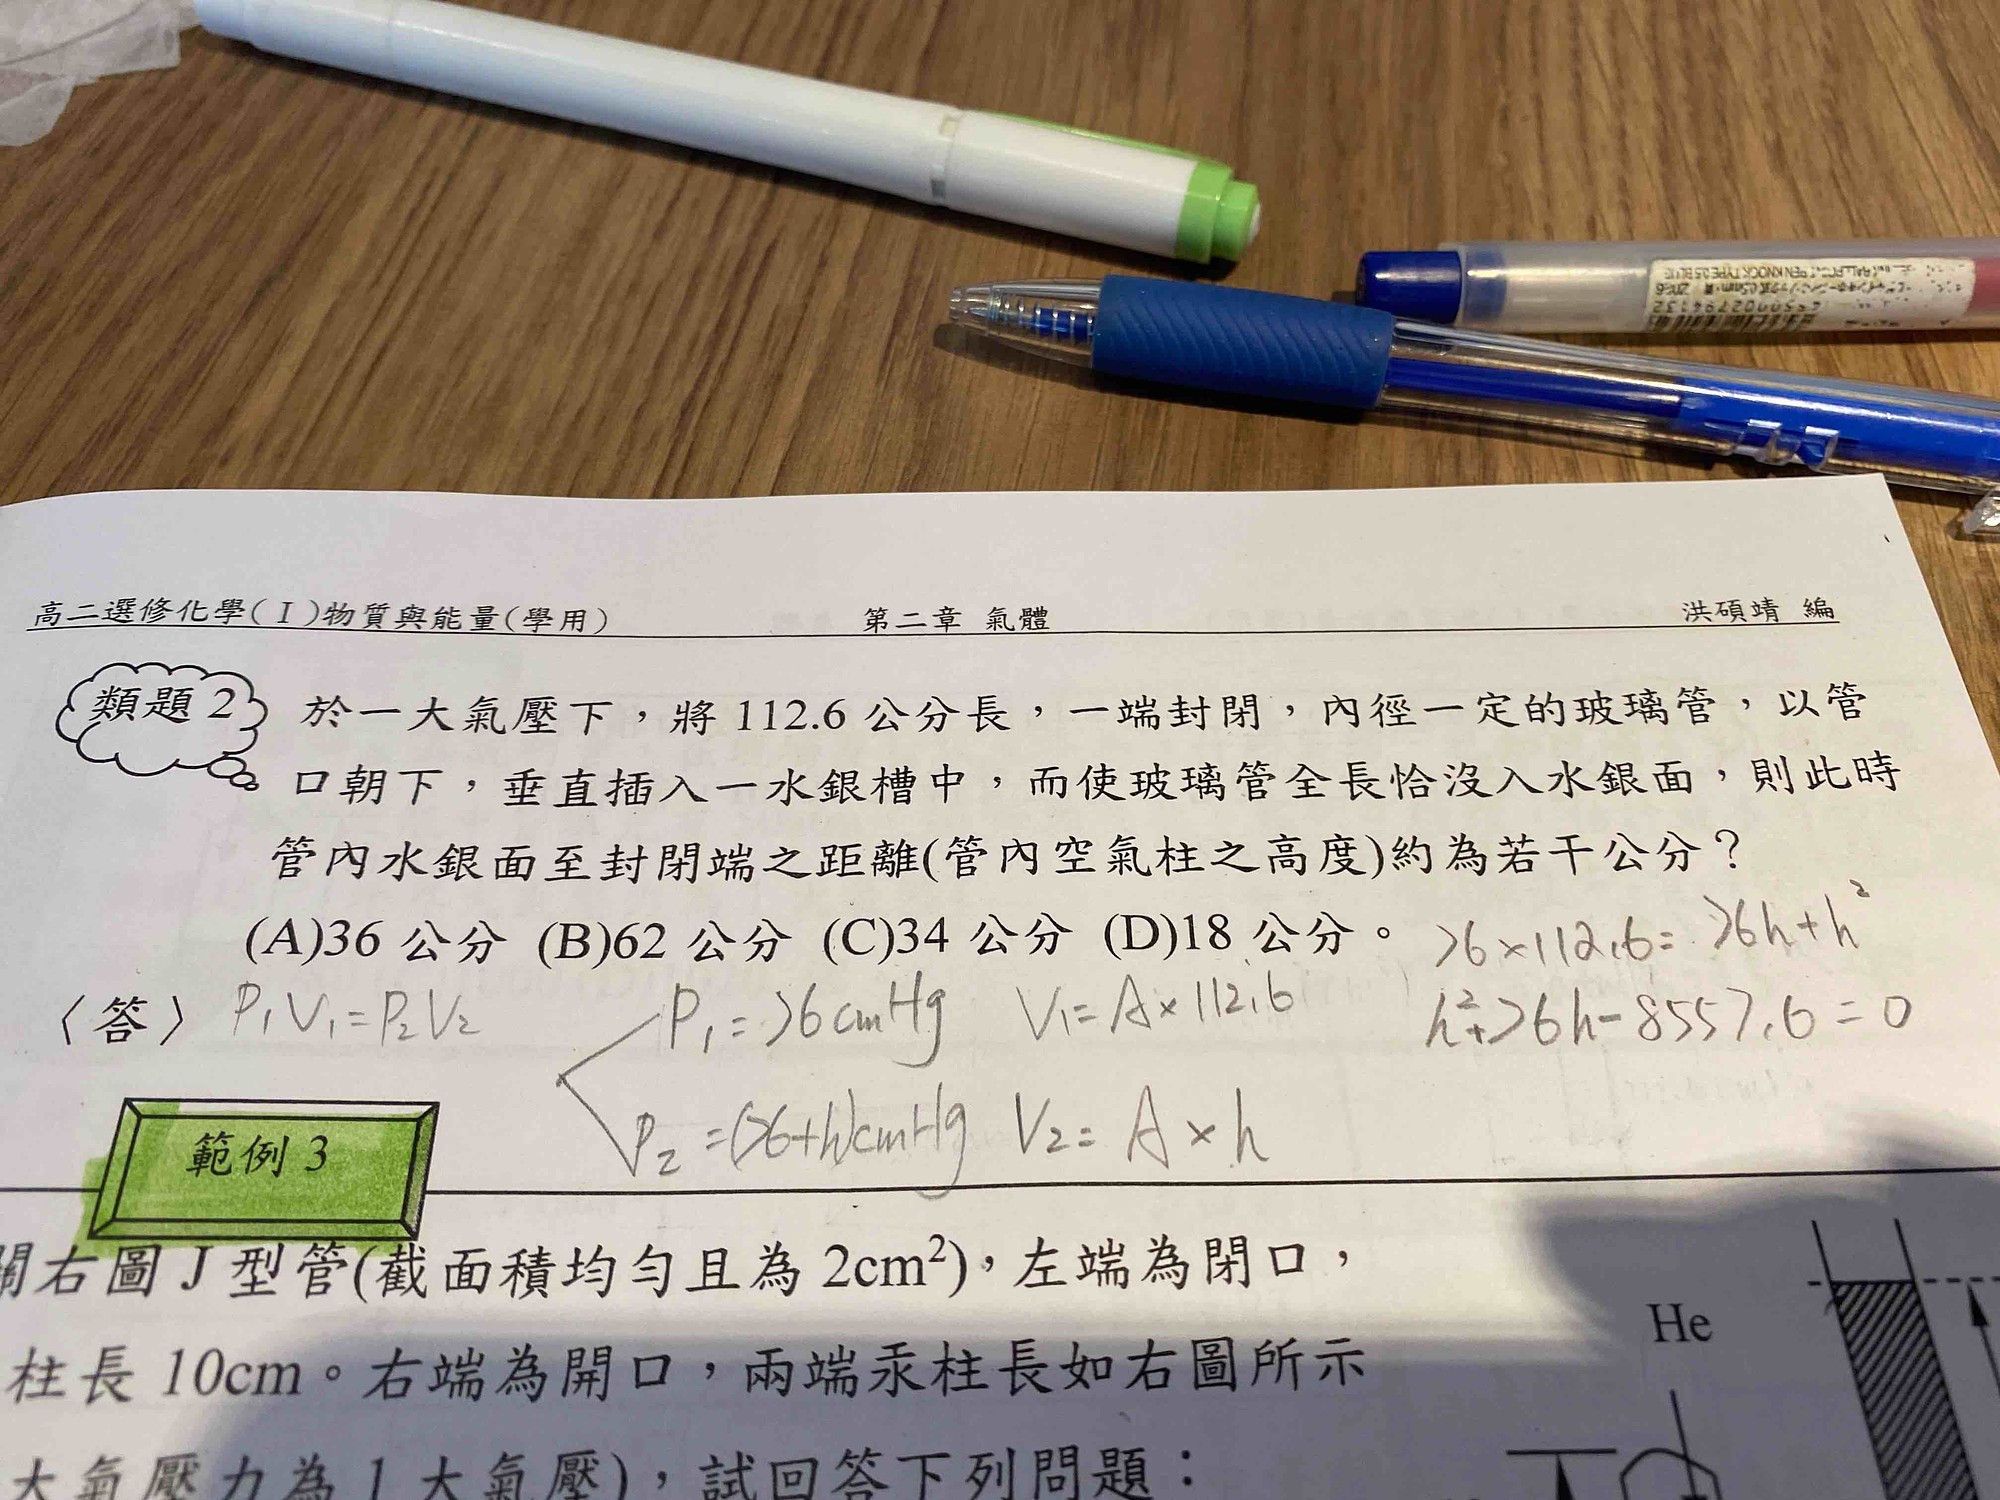 高二選修化學(Ⅰ)物質與能量(學用) 第二章 氣體 洪碩靖 編
類題 2 於一大氣壓下，將 112.6 公分長，一端封閉，內徑一定的玻璃管，以管
口朝下，垂直插入一水銀槽中，而使玻璃管全長恰沒入水銀面，則此時
管內水銀面至封閉端之距離(管內空氣柱之高度)約為若干公分？
(A)36 公分 (B)62 公分 (C)34 公分 (D)18 公分。
76×112.6= 76h+h²
〈答〉 P₁V₁=P₂V₂ P₁=76cmHg V₁=A×112.6
h²+76h-8557.6=0
P₂=(76+h)cmHg V₂= A×h
範例 3
關右圖 J 型管(截面積均勻且為 2cm²)，左端為閉口，
柱長 10cm。右端為開口，兩端汞柱長如右圖所示
He
大氣壓力為 1 大氣壓)，試回答下列問題：